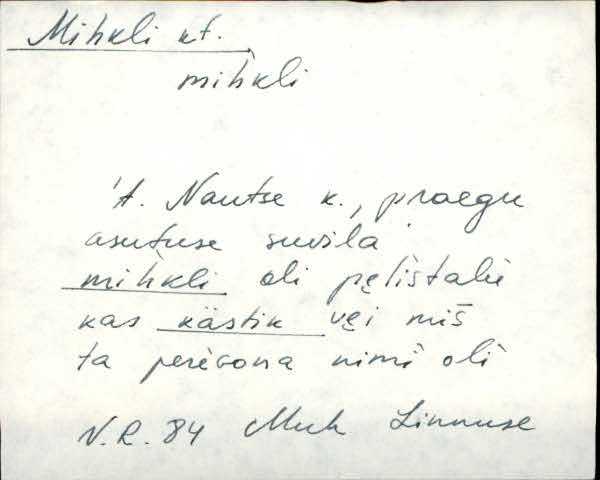 Mihkli kt.
mihkli
't. Nautse k., praegu
asutuse suvila
mihkli oli pęlistalu
kas kästik vęi miš
ta perekonna nimi oli
N.R. 84 Muh Linnuse